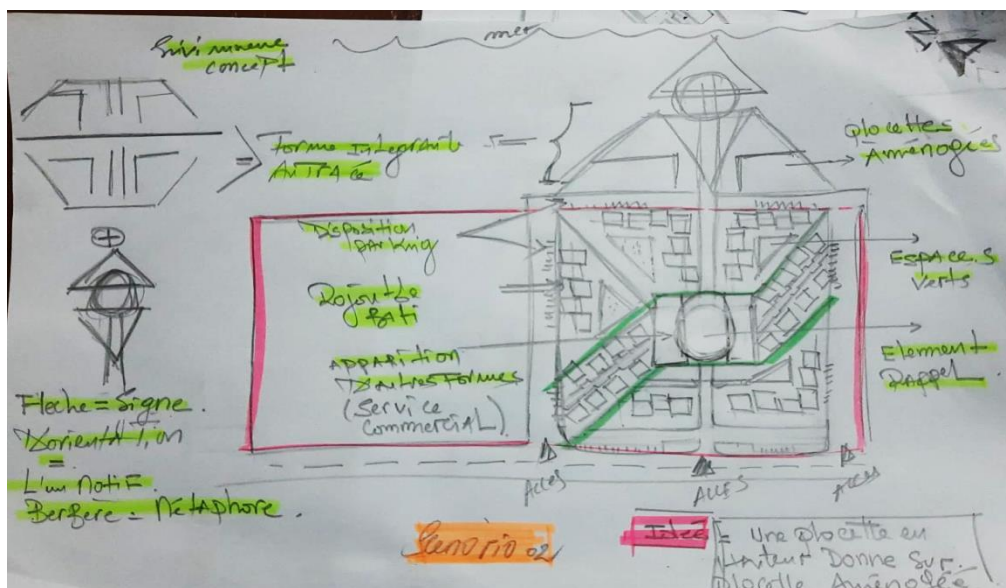 mer
Suivi même
concept
Forme Intégrante
Au TRACÉ
Placettes
Aménagées
Disposition
parking
Espaces
verts
Rajout de
Bâti
Apparition
D'autres Formes
(Service
commercial)
Element
Rappel
Fleche = Signe.
D'orientation
=
L'un Motif.
Berbère = Métaphore.
Acces
Acces
Acces
Scénario 02
Idée = Une placette en
Hauteur Donne Sur.
Placette Aménagée